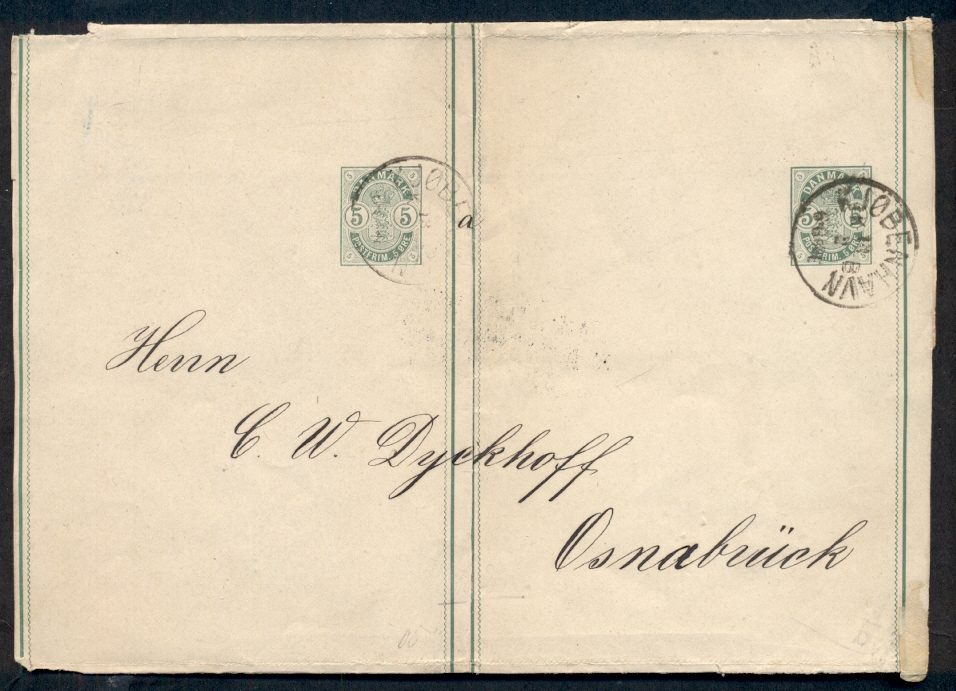 DANMARK
5 5
POSTFRIM. 5 ØRE
a
DANMARK
5
POSTFRIM. 5 ØRE
KJØBENHAVN
Herrn
C. W. Dyckhoff
Osnabrück